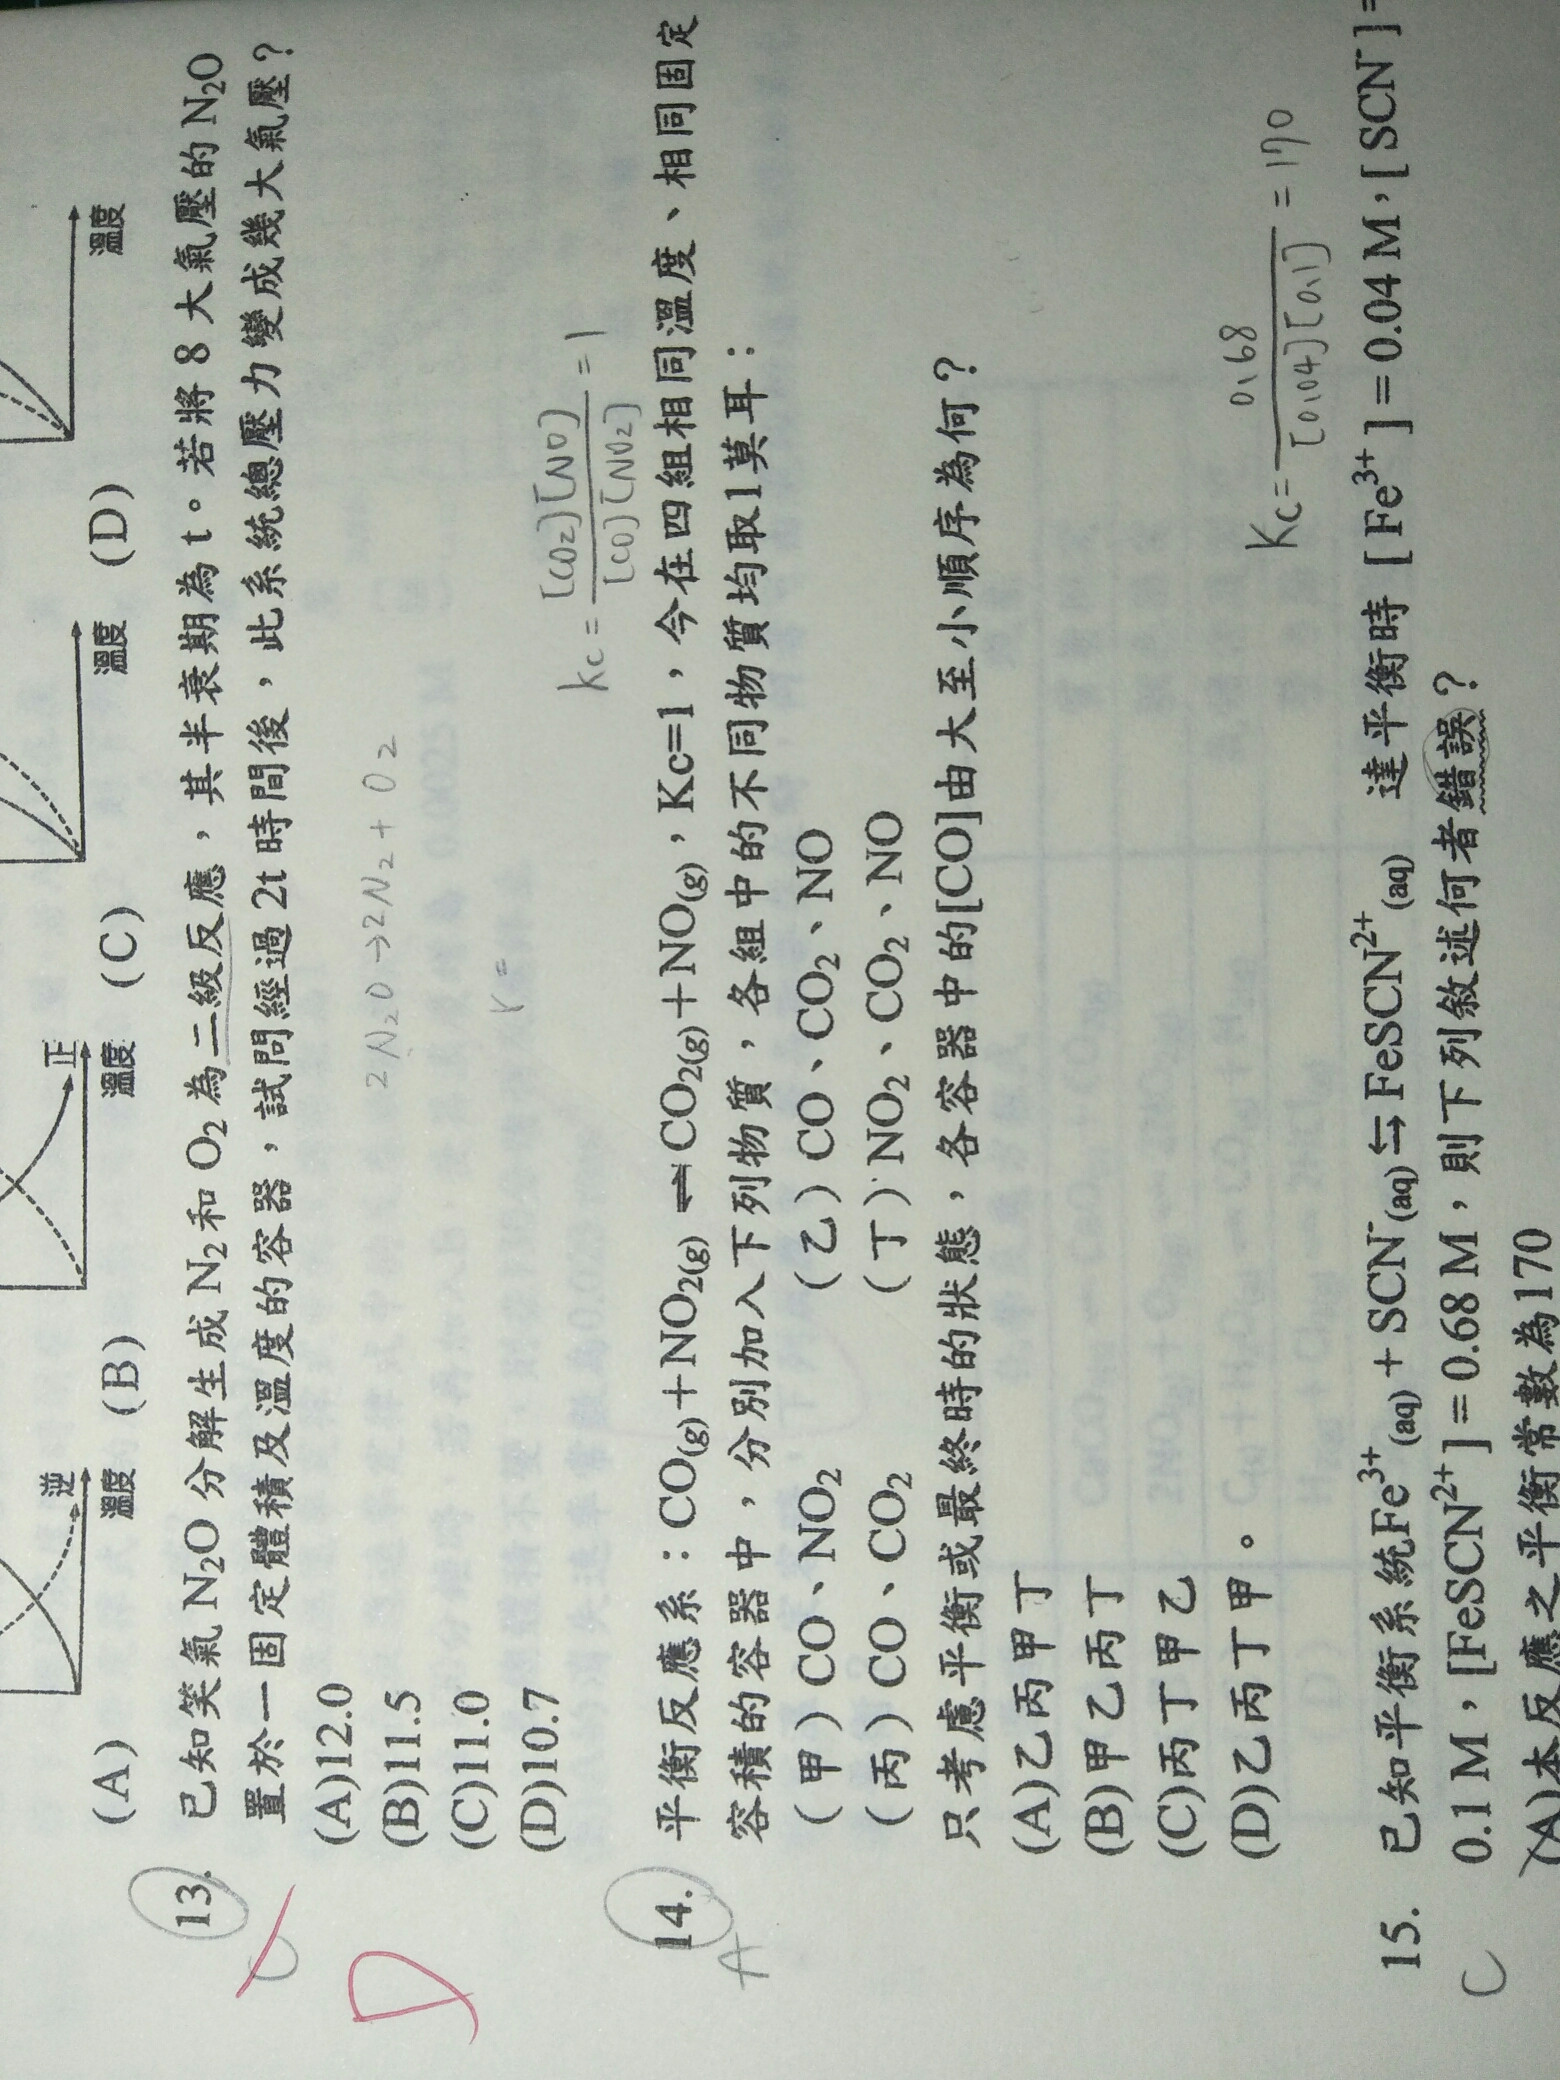 逆
溫度
正
溫度
溫度
溫度
(A)
(B)
(C)
(D)
13. 已知笑氣 N₂O 分解生成 N₂ 和 O₂ 為二級反應，其半衰期為 t。若將 8 大氣壓的 N₂O
置於一固定體積及溫度的容器，試問經過 2t 時間後，此系統總壓力變成幾大氣壓？
(A)12.0
(B)11.5
(C)11.0
(D)10.7
C
D
2N₂O→2N₂+O₂
r=
kc= [CO₂][NO] / [CO][NO₂] =1
14. 平衡反應系：CO(g)+NO₂(g) ⇌ CO₂(g)+NO(g)，Kc=1，今在四組相同溫度、相同固定
容積的容器中，分別加入下列物質，各組中的不同物質均取1莫耳：
(甲) CO、NO₂ (乙) CO、CO₂、NO
(丙) CO、CO₂ (丁) NO₂、CO₂、NO
只考慮平衡或最終時的狀態，各容器中的[CO]由大至小順序為何？
(A)乙丙甲丁
(B)甲乙丙丁
(C)丙丁甲乙
(D)乙丙丁甲。
A
Kc= 0.68 / [0.04][0.1] = 170
15. 已知平衡系統Fe³⁺(aq) + SCN⁻(aq) ⇆ FeSCN²⁺(aq) 達平衡時 [Fe³⁺] = 0.04 M，[SCN⁻] =
0.1 M，[FeSCN²⁺] = 0.68 M，則下列敘述何者錯誤？
(A)本反應之平衡常數為170
C